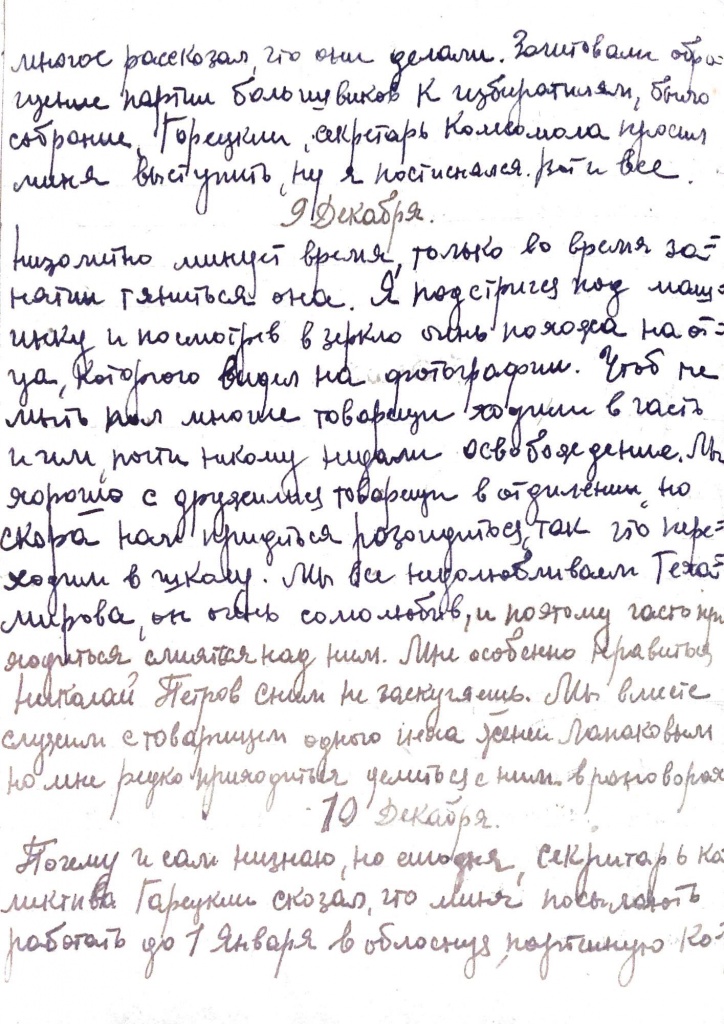 многое рассказал, что они делали. Зачитовали обра-
щение партии большивиков к избиратилям, было
собрание, Горецкии, секретарь Комсомола просил
миня выступить, ну я постиснялся. Вот и все.
9 Декабря.
Низомитно минует время, только во время за-
нятии тяниться она. Я подстригся под маш-
инку и посмотрев в зеркло очень похожа на от-
ца, которого видел на фотографии. Чтоб не
мыть пол многие товарищи ходили в часть
и им почти никому недали освобождение. Мы
хорошо с дружились товарищи в отдилении, но
скора нам придеться розоидиться, так что пере-
ходим в школу. Мы все недолюбливаем Техо-
мирова, он очень сомолюбив, и поэтому часто при
ходиться смиятся над ним. Мне особенно нравиться
Николай Петров сним не заскучаешь. Мы вместе
служим с товарищем одного цеха Женей Лапаковым
но мне редко приходиться делиться с ним в розговорах
10 Декабря.
Почему и сам низнаю, но сиодня, секритарь ка
ликтива Гарецкии скозал, что миня посылають
работать до 1 Января в обласную, партииную ко-